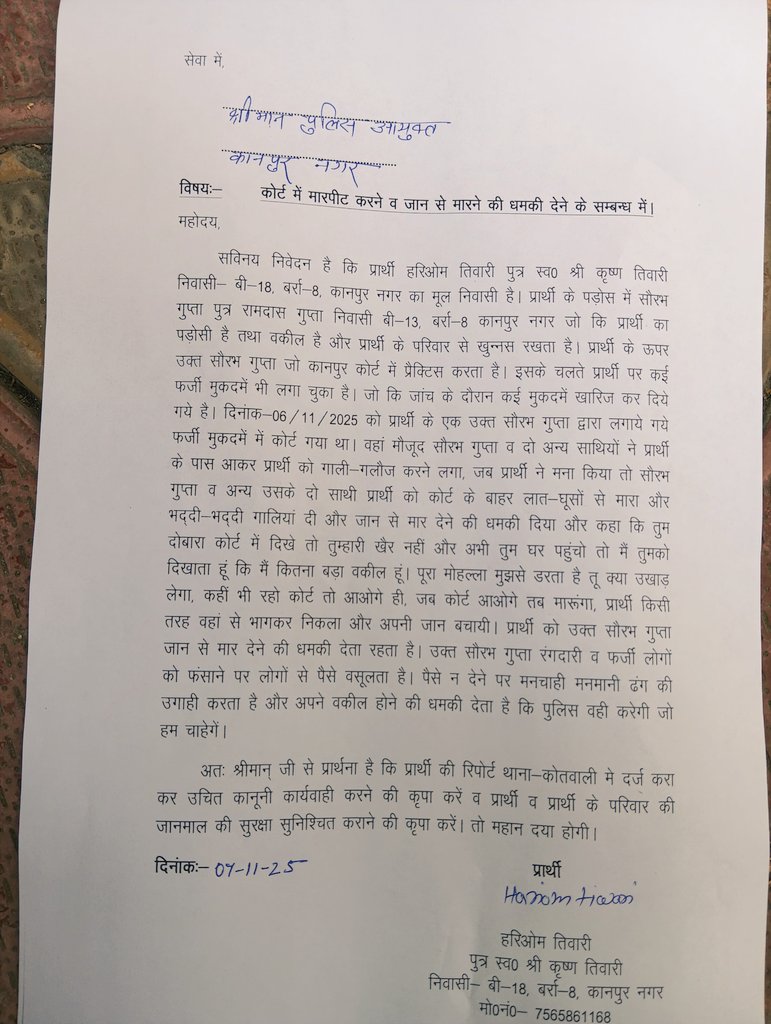 सेवा में,
श्रीमान पुलिस आयुक्त
कानपुर नगर
विषयः– कोर्ट में मारपीट करने व जान से मारने की धमकी देने के सम्बन्ध में।
महोदय,
सविनय निवेदन है कि प्रार्थी हरिओम तिवारी पुत्र स्व0 श्री कृष्ण तिवारी
निवासी– बी–18, बर्रा–8, कानपुर नगर का मूल निवासी है। प्रार्थी के पड़ोस में सौरभ
गुप्ता पुत्र रामदास गुप्ता निवासी बी–13, बर्रा–8 कानपुर नगर जो कि प्रार्थी का
पड़ोसी है तथा वकील है और प्रार्थी के परिवार से खुन्नस रखता है। प्रार्थी के ऊपर
उक्त सौरभ गुप्ता जो कानपुर कोर्ट में प्रैक्टिस करता है। इसके चलते प्रार्थी पर कई
फर्जी मुकदमें भी लगा चुका है। जो कि जांच के दौरान कई मुकदमें खारिज कर दिये
गये है। दिनांक–06/11/2025 को प्रार्थी के एक उक्त सौरभ गुप्ता द्वारा लगाये गये
फर्जी मुकदमें में कोर्ट गया था। वहां मौजूद सौरभ गुप्ता व दो अन्य साथियों ने प्रार्थी
के पास आकर प्रार्थी को गाली–गलौज करने लगा, जब प्रार्थी ने मना किया तो सौरभ
गुप्ता व अन्य उसके दो साथी प्रार्थी को कोर्ट के बाहर लात–घूसों से मारा और
भद्दी–भद्दी गालियां दी और जान से मार देने की धमकी दिया और कहा कि तुम
दोबारा कोर्ट में दिखे तो तुम्हारी खैर नहीं और अभी तुम घर पहुंचो तो मैं तुमको
दिखाता हूं कि मैं कितना बड़ा वकील हूं। पूरा मोहल्ला मुझसे डरता है तू क्या उखाड़
लेगा, कहीं भी रहो कोर्ट तो आओगे ही, जब कोर्ट आओगे तब मारूंगा, प्रार्थी किसी
तरह वहां से भागकर निकला और अपनी जान बचायी। प्रार्थी को उक्त सौरभ गुप्ता
जान से मार देने की धमकी देता रहता है। उक्त सौरभ गुप्ता रंगदारी व फर्जी लोगों
को फंसाने पर लोगों से पैसे वसूलता है। पैसे न देने पर मनचाही मनमानी ढंग की
उगाही करता है और अपने वकील होने की धमकी देता है कि पुलिस वही करेगी जो
हम चाहेगें।
अतः श्रीमान् जी से प्रार्थना है कि प्रार्थी की रिपोर्ट थाना–कोतवाली मे दर्ज करा
कर उचित कानूनी कार्यवाही करने की कृपा करें व प्रार्थी व प्रार्थी के परिवार की
जानमाल की सुरक्षा सुनिश्चित कराने की कृपा करें। तो महान दया होगी।
दिनांकः– 07-11-25 प्रार्थी
Hariom tiwari
हरिओम तिवारी
पुत्र स्व0 श्री कृष्ण तिवारी
निवासी– बी–18, बर्रा–8, कानपुर नगर
मो0नं0– 7565861168